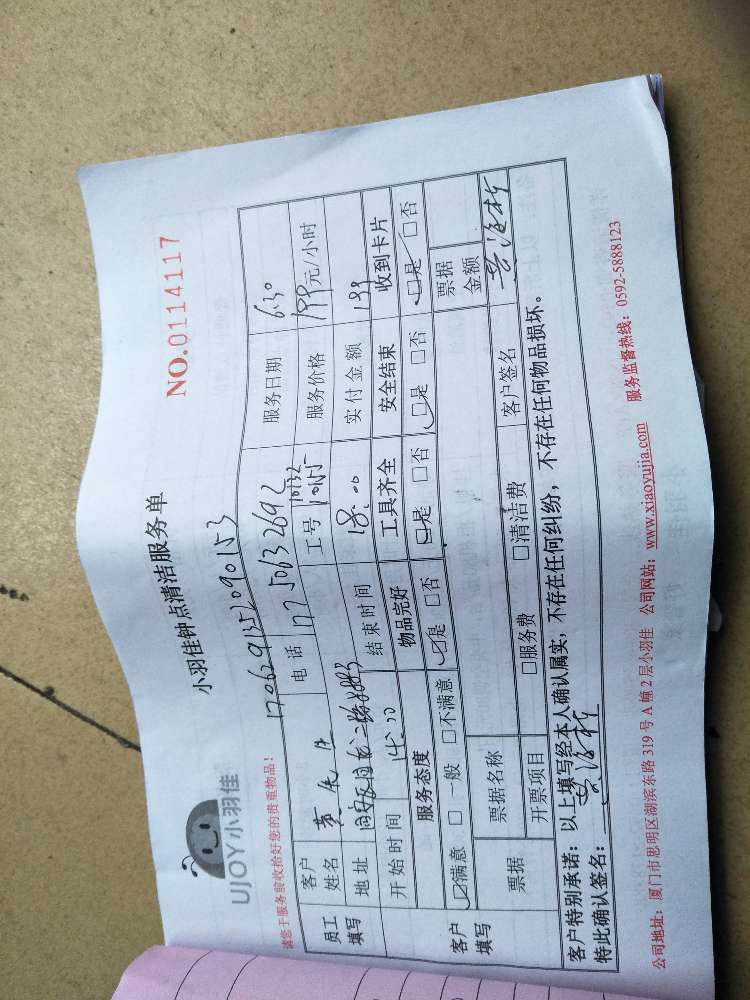 UJOY小羽佳
小羽佳钟点清洁服务单
NO.0114117
请您于服务前收拾好您的贵重物品！
1706291352090153
员工填写 客户姓名 黄先生 电话 17750632692 服务日期 6.30
地址 工号 10132 10155 服务价格 199元/小时
开始时间 14:00 结束时间 18:00 实付金额 199
客户填写 服务态度 物品完好 工具齐全 安全结束 收到卡片
☑满意 □一般 □不满意 ☑是 □否 ☑是 □否 ☑是 □否 ☑是 □否
票据 票据名称 票据金额
开票项目 □服务费 □清洁费 客户签名
客户特别承诺：以上填写经本人确认属实，不存在任何纠纷，不存在任何物品损坏。
特此确认签名：
公司地址：厦门市思明区湖滨东路319号A幢2层小羽佳 公司网站：www.xiaoyujia.com 服务监督热线：0592-5888123